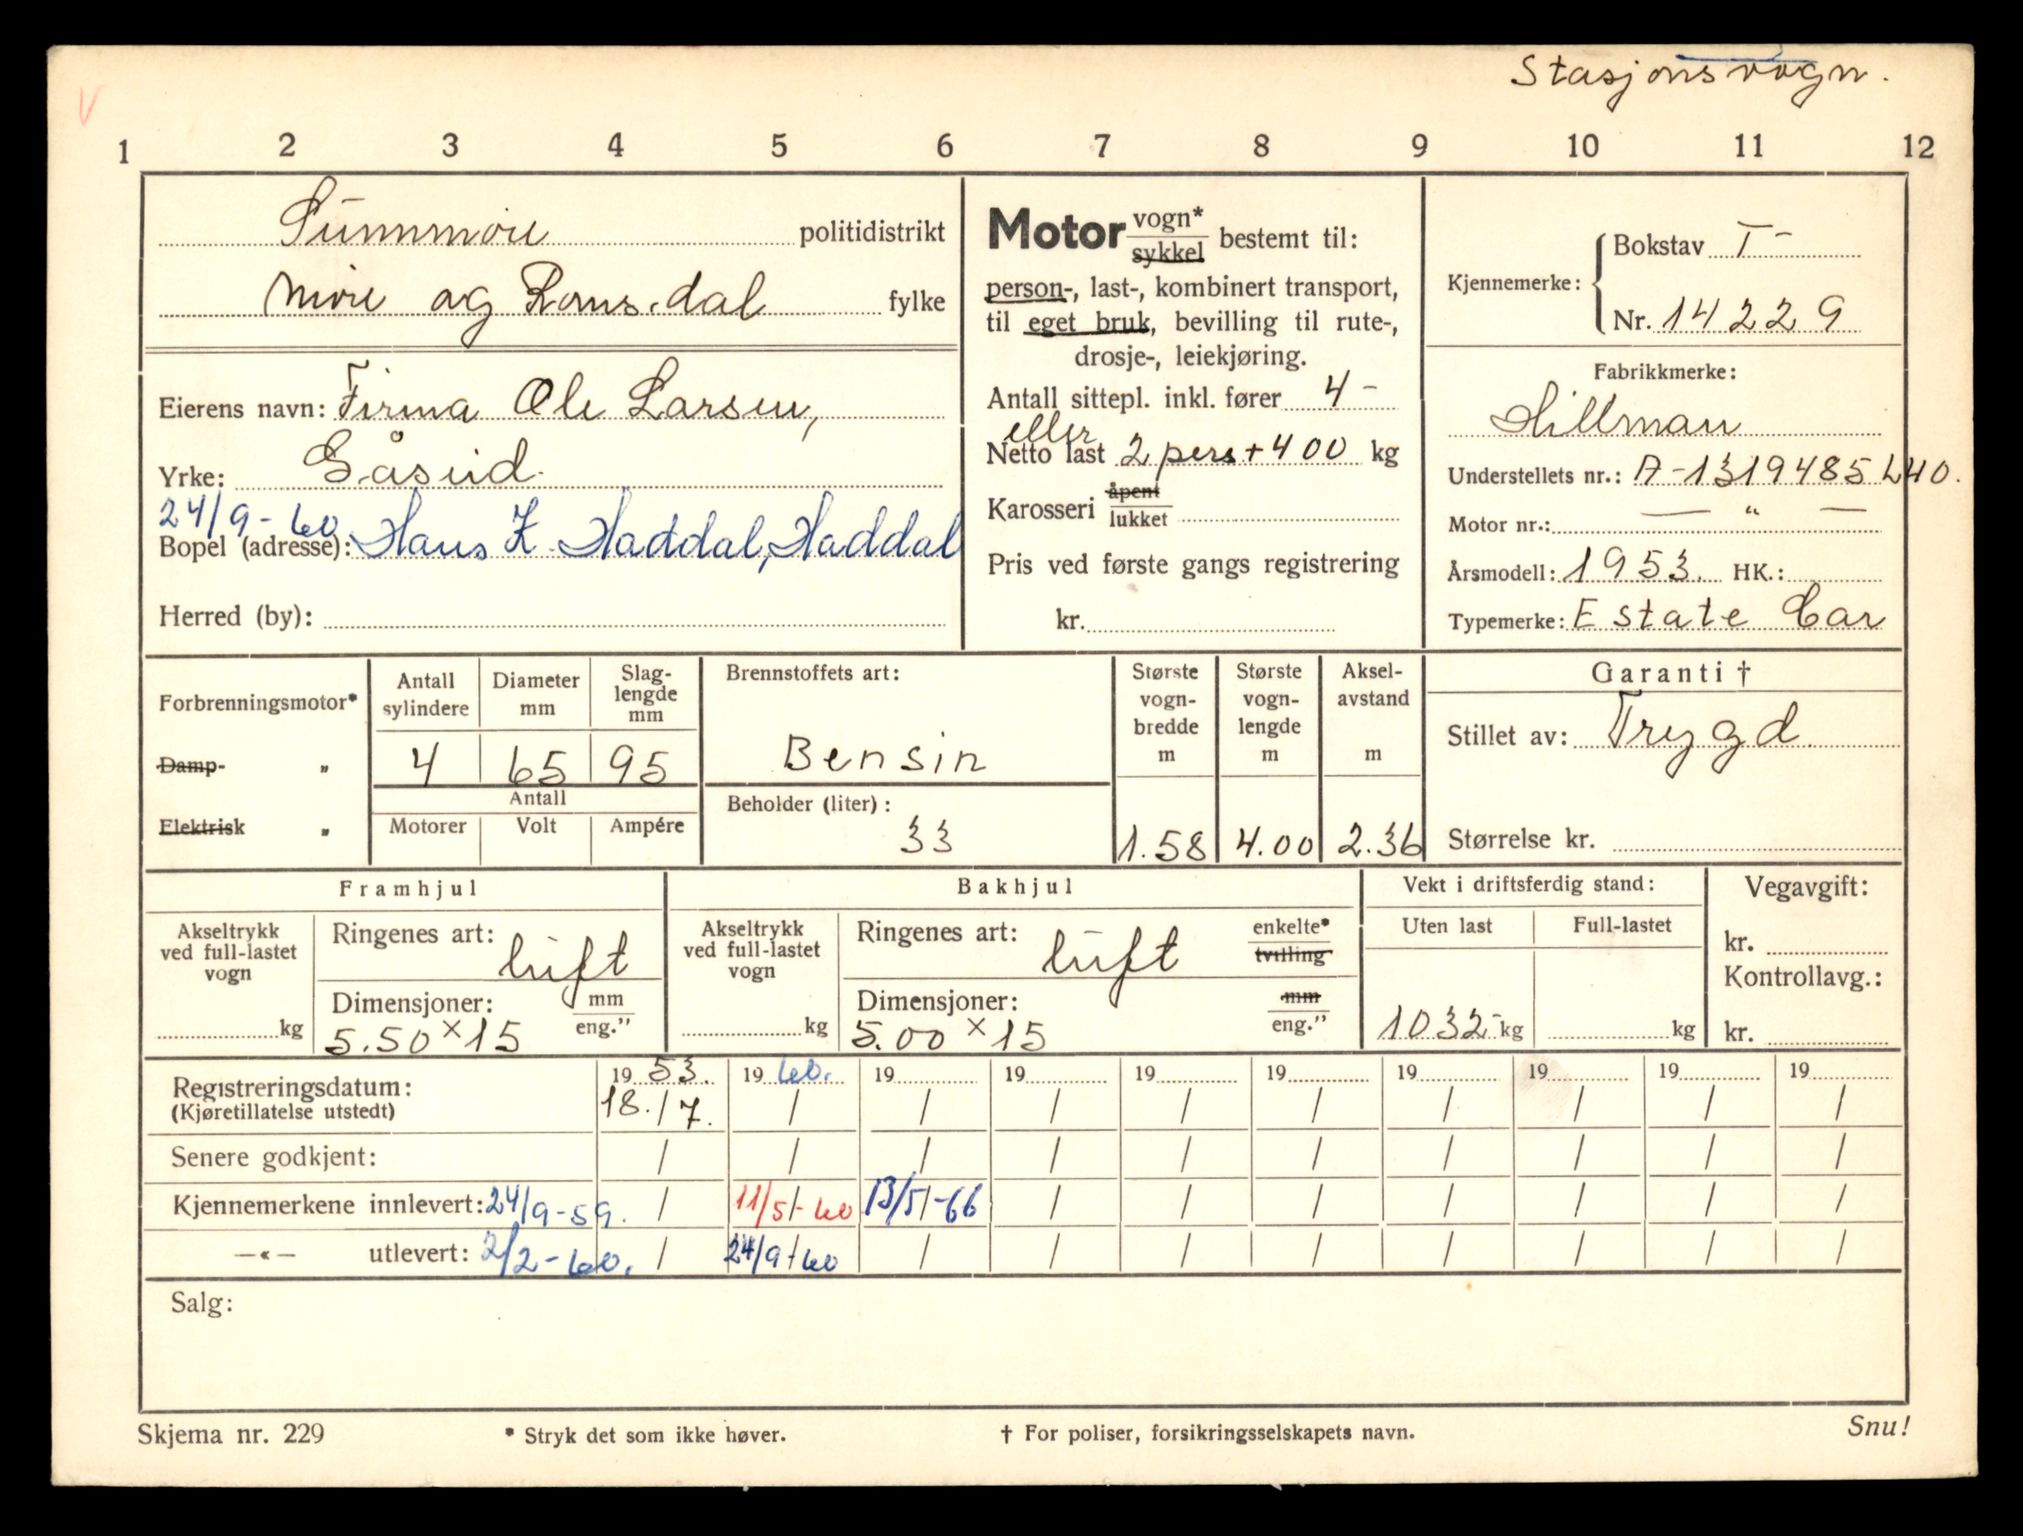 Stasjonsvogn.
V
1 2 3 4 5 6 7 8 9 10 11 12
Sunnmøre politidistrikt
Møre og Romsdal fylke
Eierens navn: Firma Ole Larsen,
Yrke: Gåseid.
24/9-60.
Bopel (adresse): Hans Z. Haddal, Haddal
Herred (by):
Motor vogn* sykkel bestemt til:
person-, last-, kombinert transport,
til eget bruk, bevilling til rute-,
drosje-, leiekjøring.
Antall sittepl. inkl. fører 4 -
eller
Netto last 2 pers + 400 kg
Karosseri åpent lukket
Pris ved første gangs registrering
kr.
Kjennemerke: Bokstav T-
Nr. 14229
Fabrikkmerke:
Hillman
Understellets nr.: A-1319485 L40.
Motor nr.: — " —
Årsmodell: 1953. HK.:
Typemerke: Estate Car
Forbrenningsmotor*
Damp- "
Elektrisk "
Antall sylindere
Diameter mm
Slag-lengde mm
4 65 95
Antall
Motorer Volt Ampére
Brennstoffets art:
Bensin
Beholder (liter):
33
Største vogn-bredde m
1.58
Største vogn-lengde m
4.00
Aksel-avstand m
2.36
Garanti †
Stillet av: Trygd.
Størrelse kr.
Framhjul
Akseltrykk ved full-lastet vogn
kg
Ringenes art: luft
Dimensjoner: mm eng."
5.50 x 15
Bakhjul
Akseltrykk ved full-lastet vogn
kg
Ringenes art: luft enkelte* tvilling
Dimensjoner: mm eng."
5.00 x 15
Vekt i driftsferdig stand:
Uten last Full-lastet
1032- kg kg
Vegavgift:
kr.
Kontrollavg.:
kr.
Registreringsdatum: 1953. 1960. 19 19 19 19 19 19 19 19
(Kjøretillatelse utstedt) 18./7. / / / / / / / / /
Senere godkjent: / / / / / / / / / /
Kjennemerkene innlevert: 24/9-59. / 11/5-60 13/5-66 / / / / / / /
—«— utlevert: 2/2-60. / 24/9-60 / / / / / / / /
Salg:
Skjema nr. 229
* Stryk det som ikke høver.
† For poliser, forsikringsselskapets navn.
Snu!